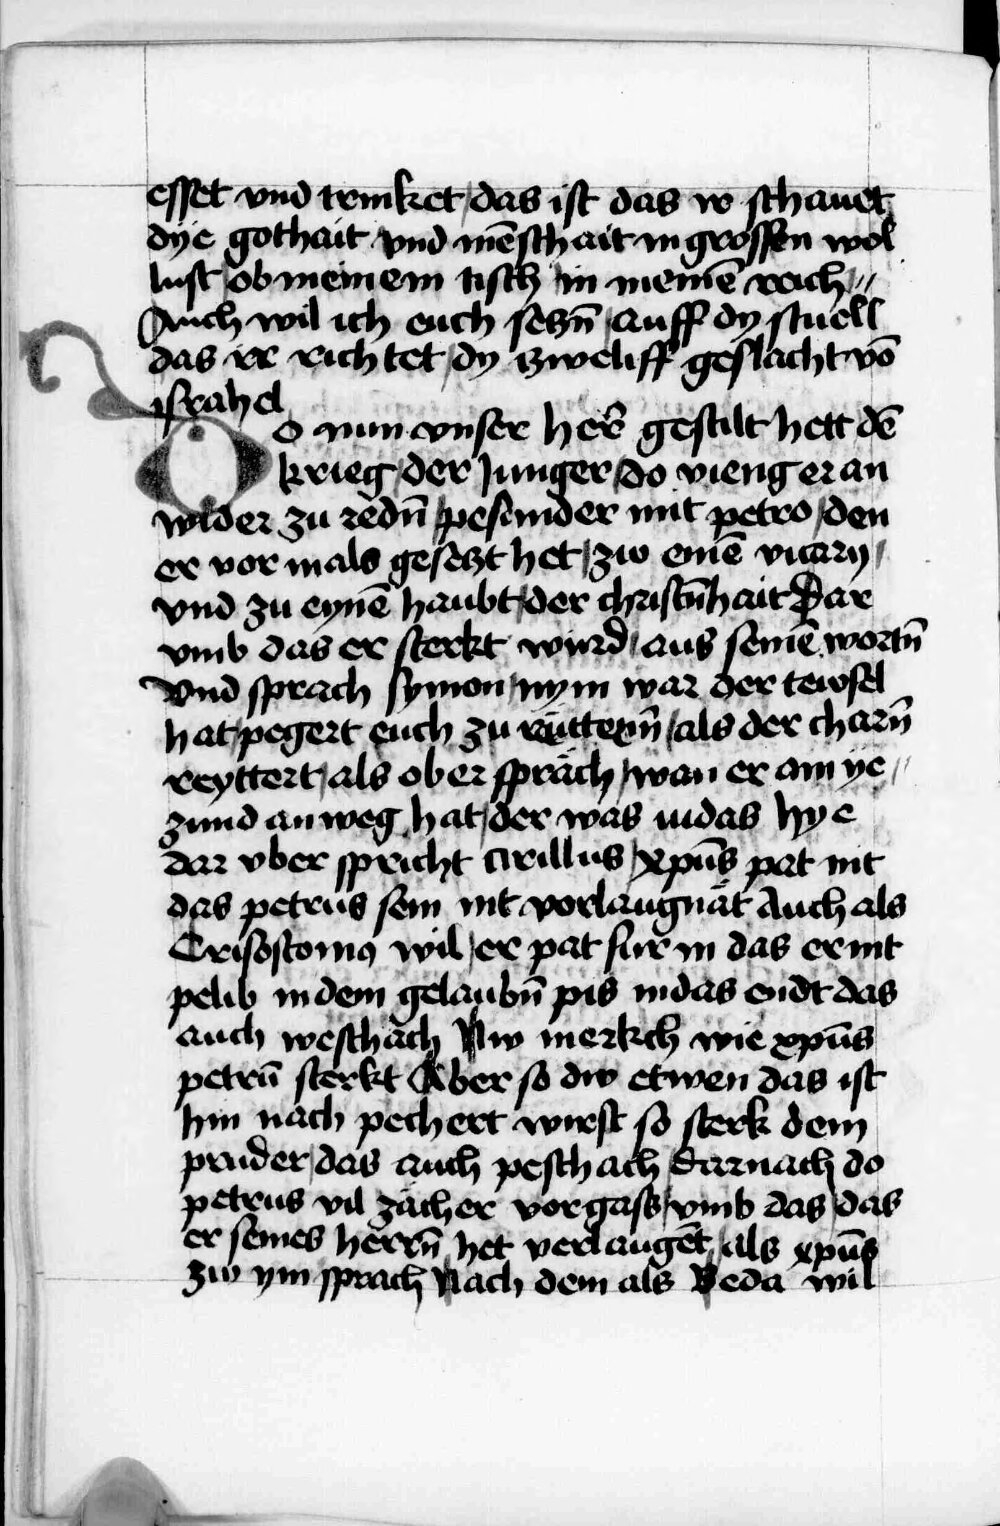 esset vnd trinket / das ist das ir schauet
dye gothait vnd mēschait in grossen wol
lust / ob meinem tisch / in meinē reich //
Auch wil ich euch seczn̄ / auff dy stuell
das ir richtet / dy zweliff geslacht vō
israhel
Do nun vnser her̄ gestilt hett dē
krieg / der Junger / do vieng er an
wider zu redn̄ / pesunder mit petro / den
er vor mals gesetzt het / zw einē vicary /
vnd zu eynē haubt / der christn̄hait Dar
vmb das er sterkt wurd / aus seinē wortn̄
Vnd sprach symon / nym war der tewfel
hat / pegert euch zu rüttern̄ / als der charn̄
reyttert / als ob er spräch / wan er ain ye //
zund an weg hat / der was iudas hye
dar vber spricht cirillus / xpūs pat nit
das petrus sein nit vorlaugnāt Auch als
Crisostomꝯ wil / er pat fur in das er nit
pelib in dem gelaubn̄ pis in das endt das
auch weschach Nw merkch wie xpūs
petrū sterkt Aber so dw etwen das ist
hin nach pechert wirst so sterk dein
pruder / das auch peschach / darnach do
petrus vil zächer vorgass / vmb das / das
er seines herrn̄ het verlaugēt / als xpūs
zw ym sprach Nach dem als Beda wil